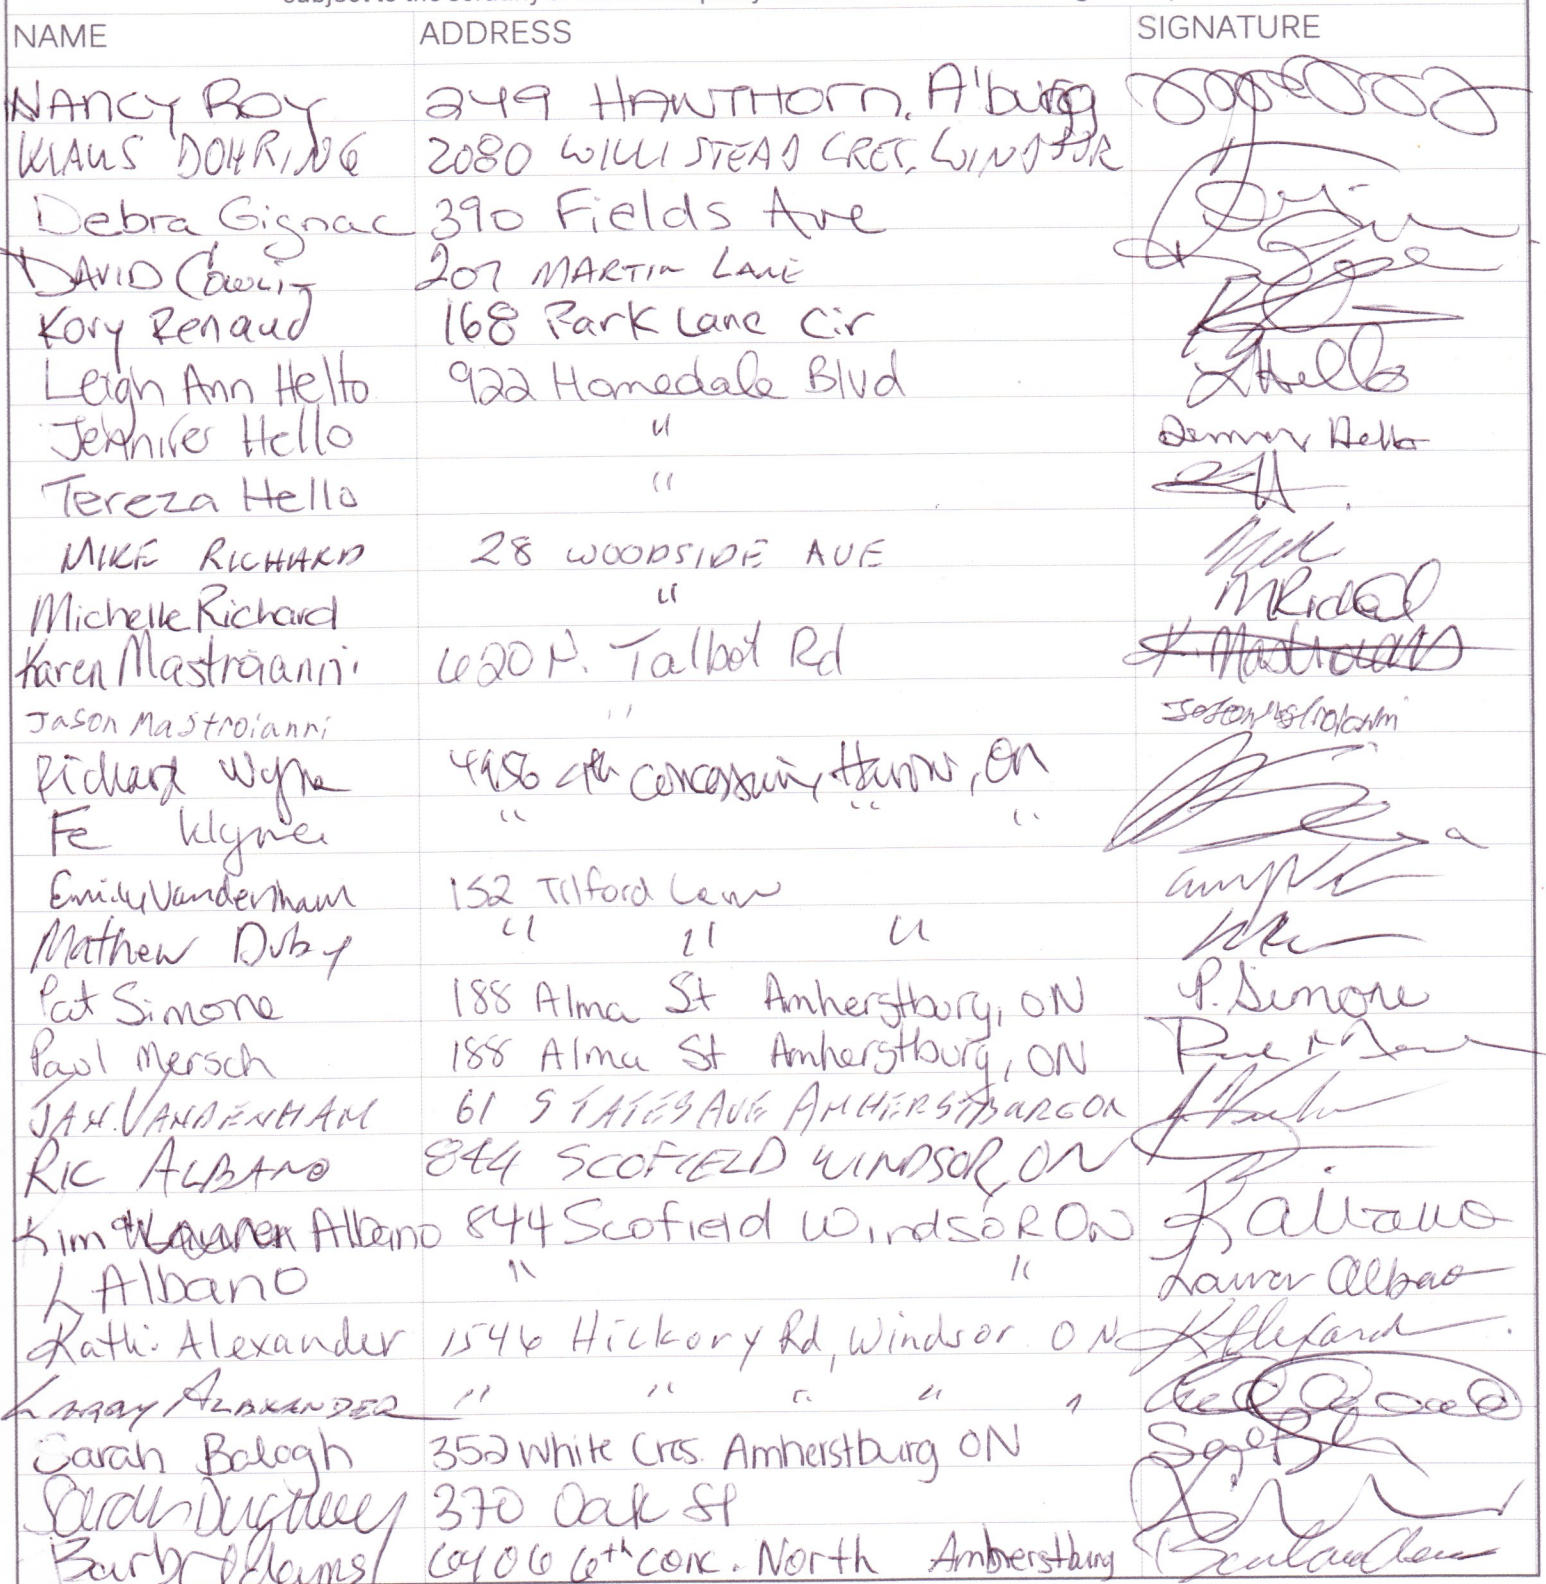 NAME ADDRESS SIGNATURE
NANCY ROY 249 HAWTHORN, A'burg
KLAUS DOHRING 2080 WILLISTEAD CRES, WINDSOR
Debra Gignac 390 Fields Ave
DAVID 207 MARTIN LANE
Kory Renaud 168 Park Lane Cir
Leigh Ann Hello 922 Homedale Blvd LHello
Jennifer Hello " Hello
Tereza Hello "
MIKE RICHARD 28 WOODSIDE AVE
Michelle Richard "
Karen Mastroianni 620 N. Talbot Rd K. Mastroianni
Jason Mastroianni " Jason Mastroianni
Richard 4th Concession, Harrow, ON
Fe " " "
Emily Vandenham 152 Tilford
Mathew Duby " " "
Pat Simone 188 Alma St Amherstburg, ON P. Simone
Paul Mersch 188 Alma St Amherstburg, ON
JAN. VANDENHAM 61 STATES AVE AMHERSTBURG ON
RIC ALBANO 844 SCOFIELD WINDSOR, ON
Kim Albano 844 Scofield Windsor ON K Albano
L Albano " " Lauren Albano
Kathi Alexander 1546 Hickory Rd, Windsor ON K Alexander
LARRY ALEXANDER " " " "
Sarah Balogh 352 White Cres. Amherstburg ON
Sarah 370 Oak St
Barb Adams 6406 6th conc. North Amherstburg